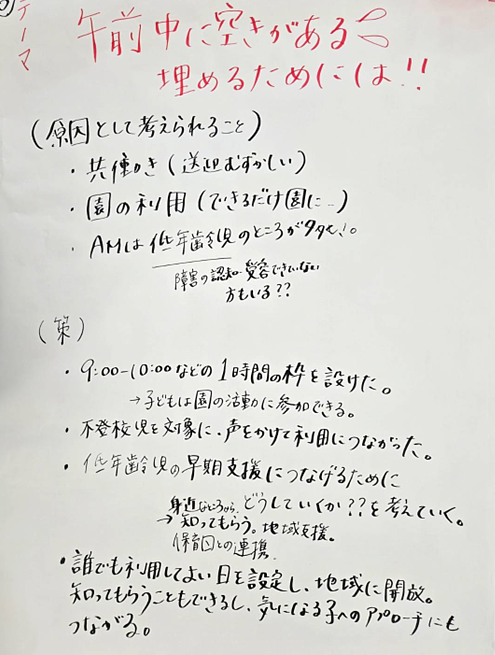 テーマ
午前中に空きがある
埋めるためには!!
(原因として考えられること)
・共働き(送迎むずかしい)
・園の利用(できるだけ園に…)
・AMは低年齢児のところが多い。
障害の認知・受容できていない
方もいる??
(策)
・9:00-10:00などの1時間の枠を設けた。
→子どもは園の活動に参加できる。
・不登校児を対象に、声をかけて利用につながった。
・低年齢児の早期支援につなげるために
身近なところから、どうしていくか??を考えていく。
→知ってもらう。地域支援。
保育園との連携
・誰でも利用してよい日を設定し、地域に開放。
知ってもらうこともできるし、気になる子へのアプローチにも
つながる。